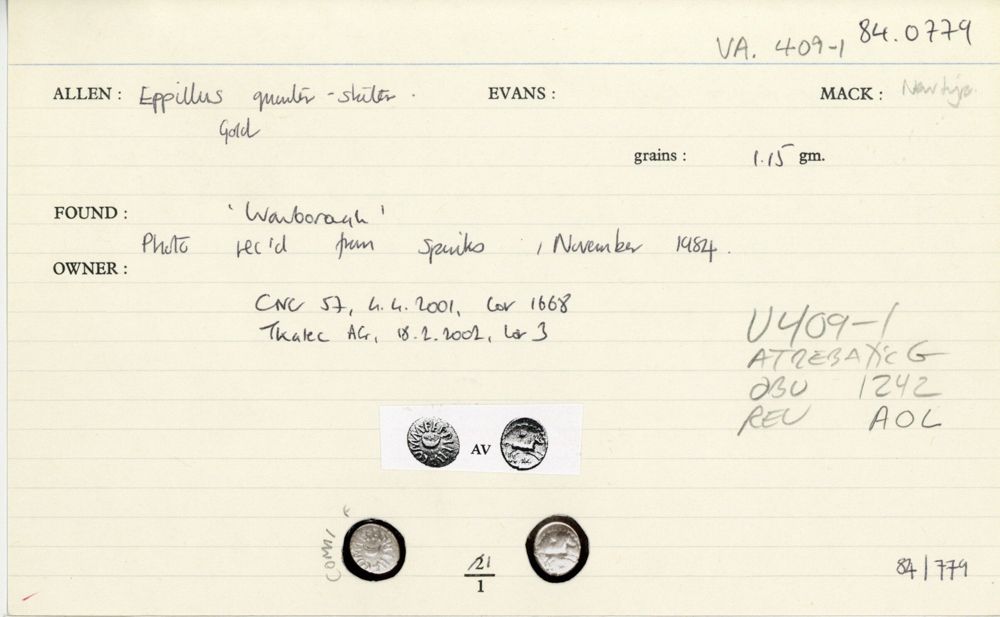 VA. 409-1 84.0779
ALLEN : Eppillus quarter-stater. EVANS : MACK : New type.
Gold
grains : 1.15 gm.
FOUND : 'Wanborough'
Photo rec'd from Spinks, November 1984.
OWNER :
CNG 57, 4.4.2001, Lot 1668
Tkalec AG, 18.2.2002, Lot 3
V409-1
ATREBATIC G
OBV 1242
REV AOL
AV
COMM
21
1
84/779